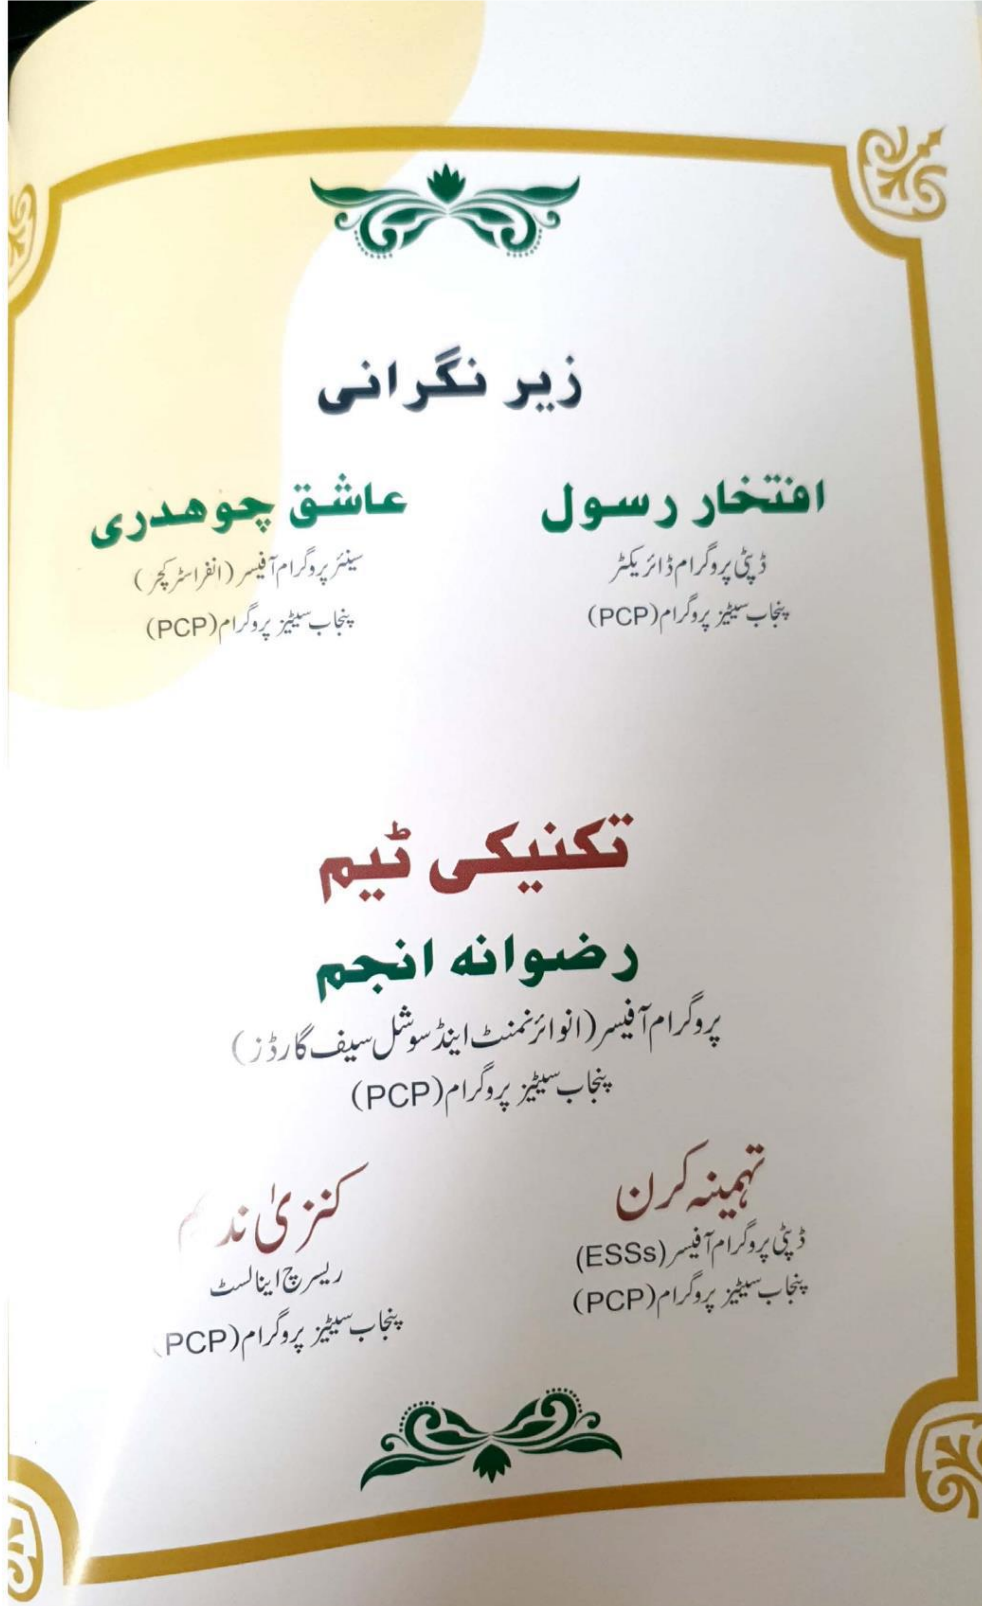 زیر نگرانی
افتخار رسول
ڈپٹی پروگرام ڈائریکٹر
پنجاب سیٹیز پروگرام (PCP)
عاشق چوہدری
سینئر پروگرام آفیسر (انفراسٹرکچر)
پنجاب سیٹیز پروگرام (PCP)
تکنیکی ٹیم
رضوانہ انجم
پروگرام آفیسر (انوائرنمنٹ اینڈ سوشل سیف گارڈز)
پنجاب سیٹیز پروگرام (PCP)
تہمینہ کرن
ڈپٹی پروگرام آفیسر (ESSs)
پنجاب سیٹیز پروگرام (PCP)
کنزیٰ
ریسرچ اینالسٹ
پنجاب سیٹیز پروگرام (PCP)